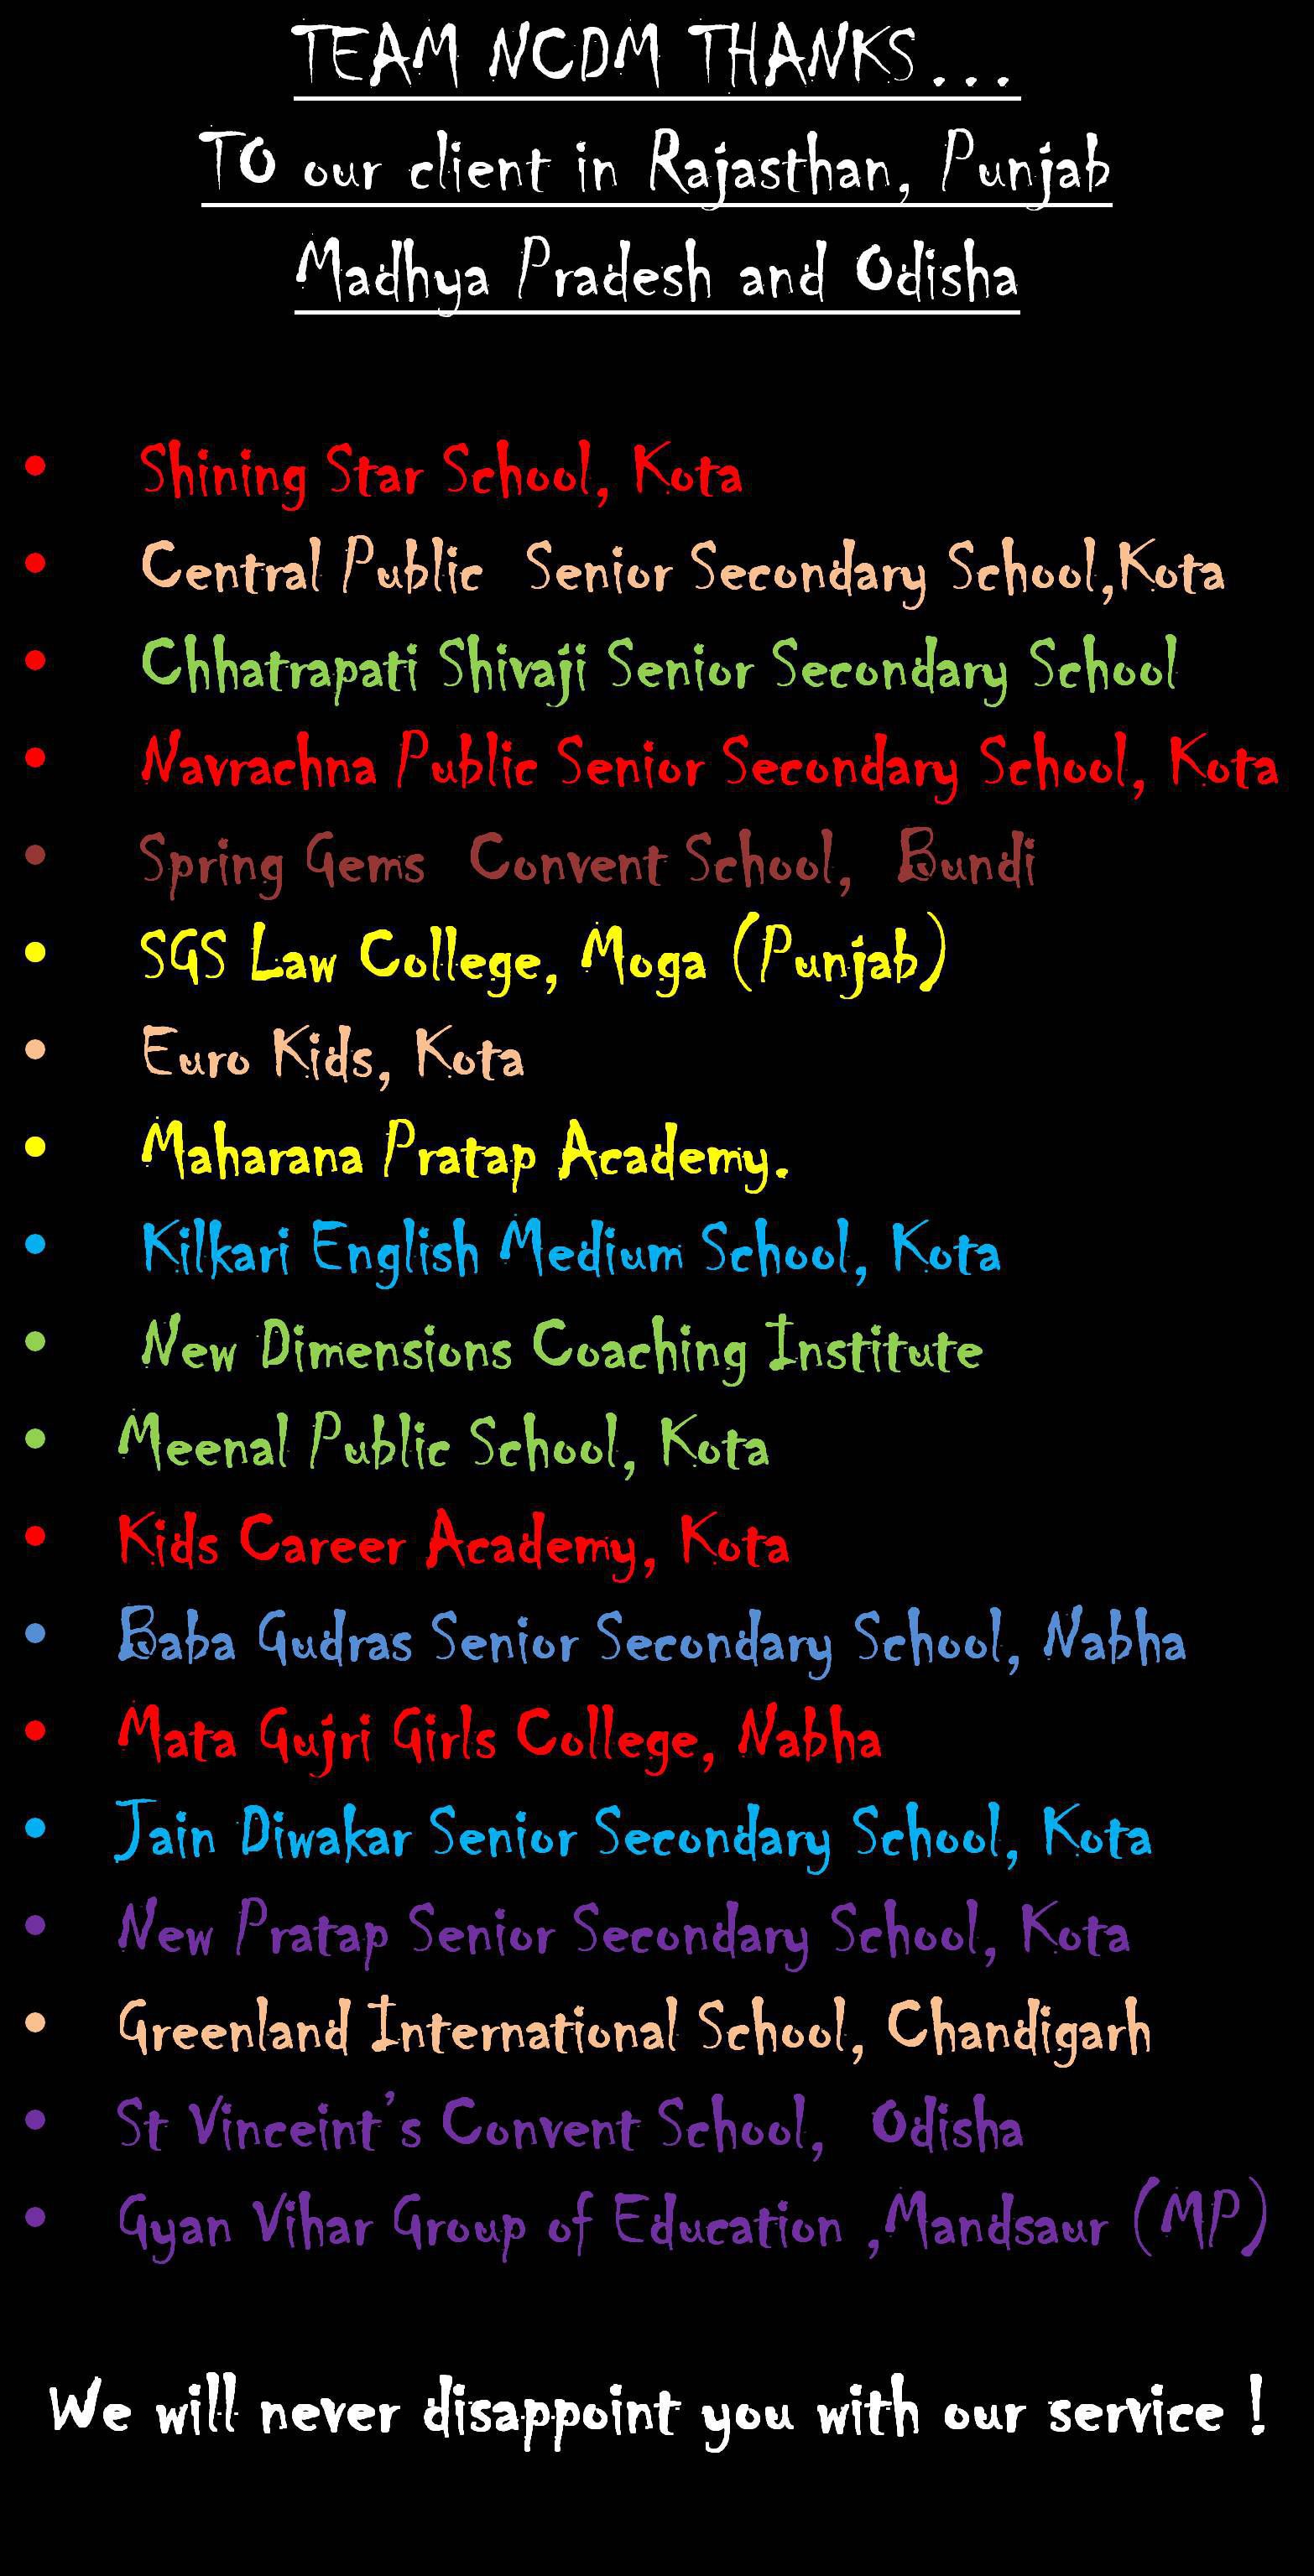 TEAM NCDM THANKS...
TO our client in Rajasthan, Punjab
Madhya Pradesh and Odisha
• Shining Star School, Kota
• Central Public Senior Secondary School,Kota
• Chhatrapati Shivaji Senior Secondary School
• Navrachna Public Senior Secondary School, Kota
• Spring Gems Convent School, Bundi
• SGS Law College, Moga (Punjab)
• Euro Kids, Kota
• Maharana Pratap Academy.
• Kilkari English Medium School, Kota
• New Dimensions Coaching Institute
• Meenal Public School, Kota
• Kids Career Academy, Kota
• Baba Gudras Senior Secondary School, Nabha
• Mata Gujri Girls College, Nabha
• Jain Diwakar Senior Secondary School, Kota
• New Pratap Senior Secondary School, Kota
• Greenland International School, Chandigarh
• St Vinceint's Convent School, Odisha
• Gyan Vihar Group of Education ,Mandsaur (MP)
We will never disappoint you with our service !